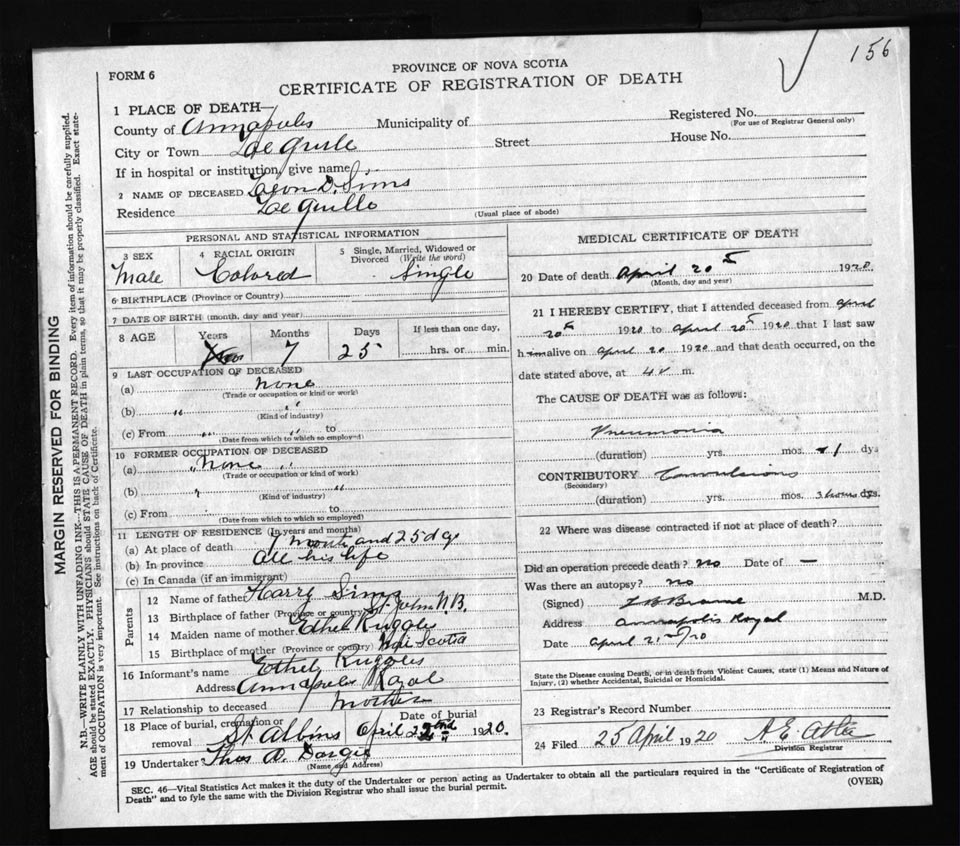 156
PROVINCE OF NOVA SCOTIA
FORM 6
CERTIFICATE OF REGISTRATION OF DEATH
MARGIN RESERVED FOR BINDING
N.B.—WRITE PLAINLY WITH UNFADING INK—THIS IS A PERMANENT RECORD. Every item of information should be carefully supplied.
AGE should be stated EXACTLY. PHYSICIANS should STATE CAUSE OF DEATH in plain terms, so that it may be properly classified. Exact state-
ment of OCCUPATION is very important. See instructions on back of Certificate.
1 PLACE OF DEATH—
County of Annapolis Municipality of
Registered No.
(For use of Registrar General only)
City or Town Lequille Street House No.
If in hospital or institution, give name
2 NAME OF DECEASED Leon D. Sims
Residence Lequille
(Usual place of abode)
PERSONAL AND STATISTICAL INFORMATION
3 SEX 4 RACIAL ORIGIN 5 Single, Married, Widowed or
Divorced (Write the word)
Male Colored Single
6 BIRTHPLACE (Province or Country)
7 DATE OF BIRTH (month, day and year)
8 AGE Years Months Days If less than one day,
7 25 hrs. or min.
9 LAST OCCUPATION OF DECEASED
(a) none
(Trade or occupation or kind or work)
(b) " "
(Kind of industry)
(c) From " " to
(Date from which to which so employed)
10 FORMER OCCUPATION OF DECEASED
(a) none "
(Trade or occupation or kind of work)
(b) " "
(Kind of industry)
(c) From to
(Date from which to which so employed)
11 LENGTH OF RESIDENCE (In years and months)
(a) At place of death 7 month and 25 dys
(b) In province All his life
(c) In Canada (if an immigrant)
Parents
12 Name of father Harry Sims
13 Birthplace of father (Province or country) St John N.B.
14 Maiden name of mother Ethel Ruggles
15 Birthplace of mother (Province or country) Scotia
16 Informant's name Ethel Ruggles
Address Annapolis Royal
17 Relationship to deceased Mother
18 Place of burial, cremation or
removal St Albins Date of burial April 22nd 1920.
19 Undertaker Thos A. Dargie
(Name and Address)
MEDICAL CERTIFICATE OF DEATH
20 Date of death April 20th 1920
(Month, day and year)
21 I HEREBY CERTIFY, that I attended deceased from April
20th 1920 to April 20th 1920 that I last saw
him alive on April 20 1920 and that death occurred, on the
date stated above, at 4 m.
The CAUSE OF DEATH was as follows:
Pneumonia
(duration) yrs. mos. 1 dys
CONTRIBUTORY Convulsions
(Secondary)
(duration) yrs. mos. 3 hours dys.
22 Where was disease contracted if not at place of death?
Did an operation precede death? no Date of —
Was there an autopsy? no
(Signed) M.D.
Address Annapolis Royal
Date April 21 20
State the Disease causing Death, or in death from Violent Causes, state (1) Means and Nature of
Injury, (2) whether Accidental, Suicidal or Homicidal.
23 Registrar's Record Number
24 Filed 25 April 1920 A E Atlee
Division Registrar
SEC. 46—Vital Statistics Act makes it the duty of the Undertaker or person acting as Undertaker to obtain all the particulars required in the "Certificate of Registration of
Death" and to fyle the same with the Division Registrar who shall issue the burial permit.
(OVER)